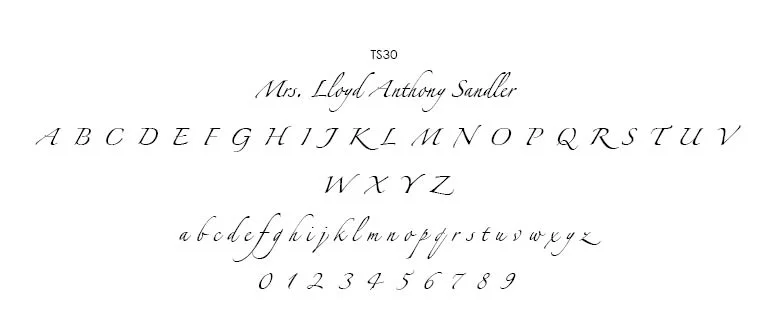 TS30
Mrs. Lloyd Anthony Sandler
A B C D E F G H I J K L M N O P Q R S T U V
W X Y Z
a b c d e f g h i j k l m n o p q r s t u v w x y z
0 1 2 3 4 5 6 7 8 9